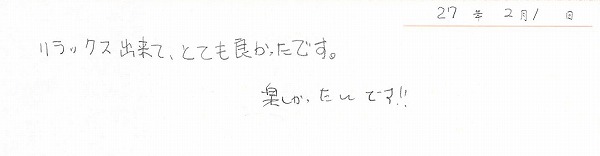 27 年 2 月 1 日
リラックス出来て、とても良かったです。
楽しかったいです!!